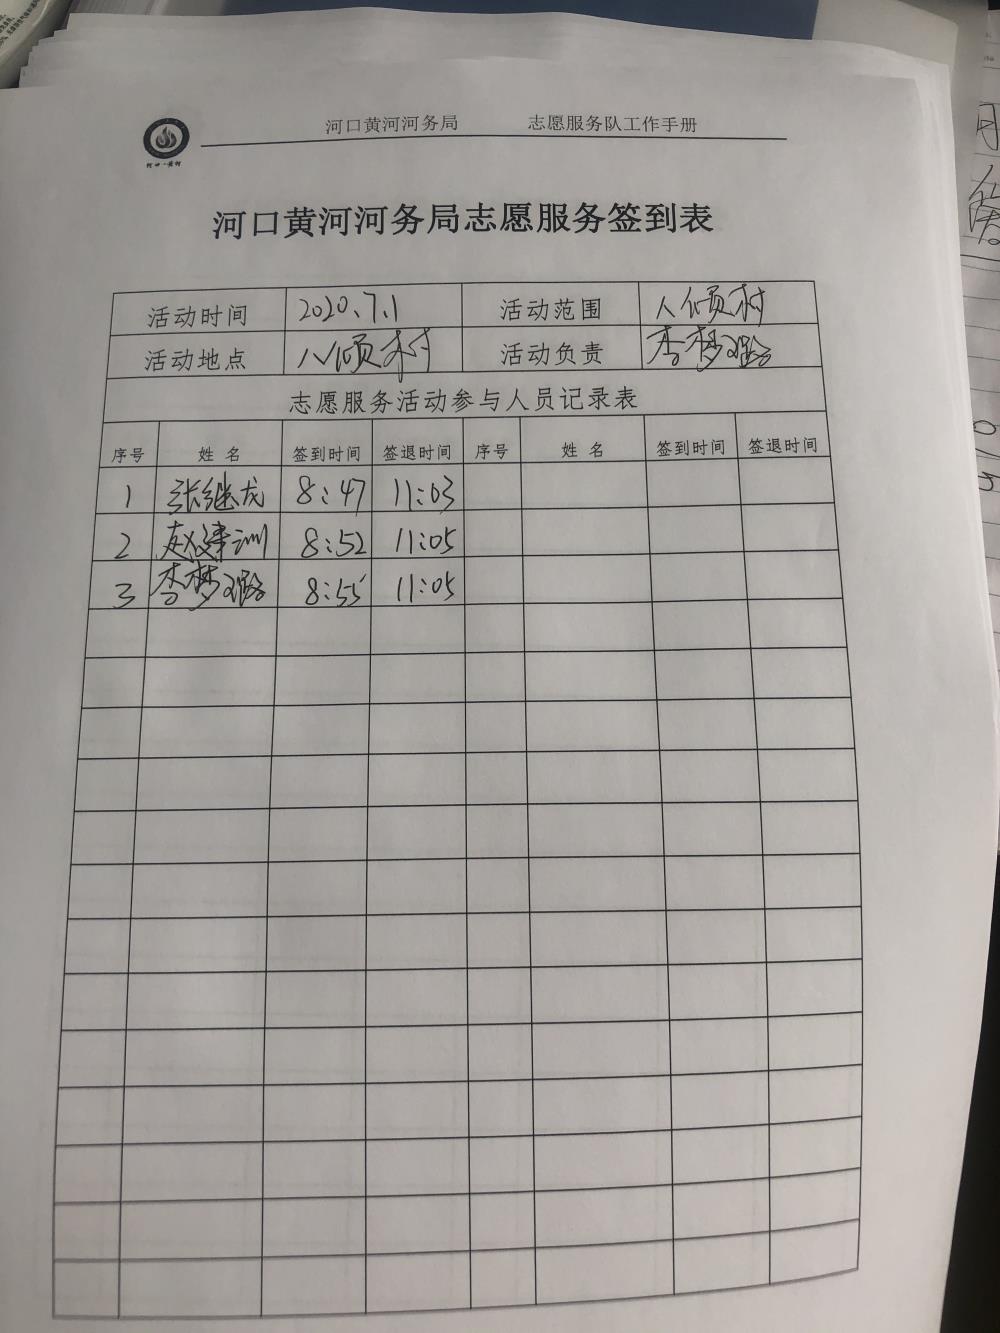 河口黄河河务局 志愿服务队工作手册
河口·黄河
河口黄河河务局志愿服务签到表
活动时间 2020.7.1 活动范围 八倾村
活动地点 八倾村 活动负责 李梦璐
志愿服务活动参与人员记录表
序号 姓名 签到时间 签退时间 序号 姓名 签到时间 签退时间
1 张继龙 8:47 11:03
2 赵建训 8:52 11:05
3 李梦璐 8:55 11:05